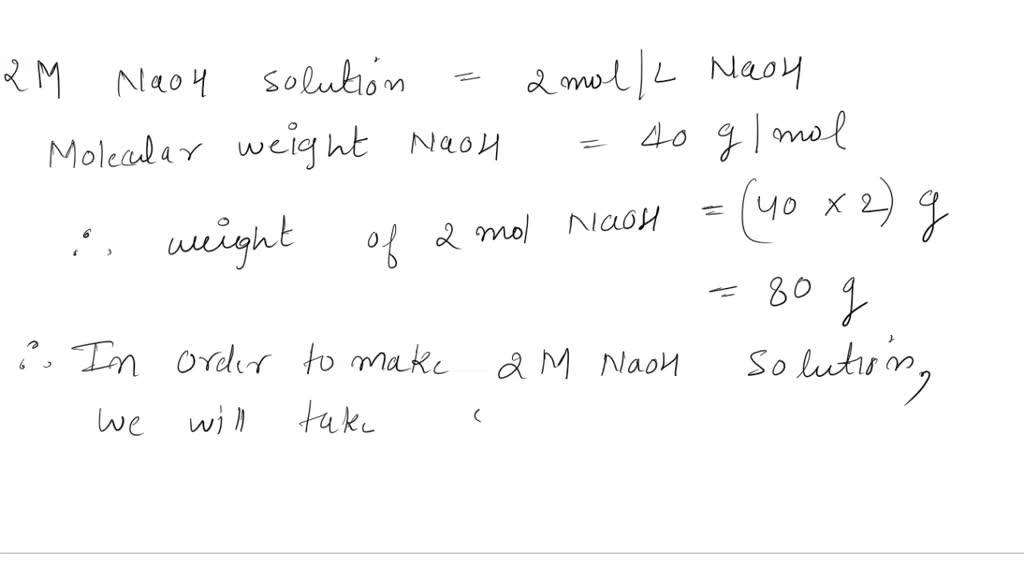 2M NaOH solution = 2mol/L NaOH
Molecular weight NaOH = 40 g/mol
∴ weight of 2 mol NaOH = (40 × 2) g
= 80 g
∴ In order to make 2M NaOH solution,
we will take